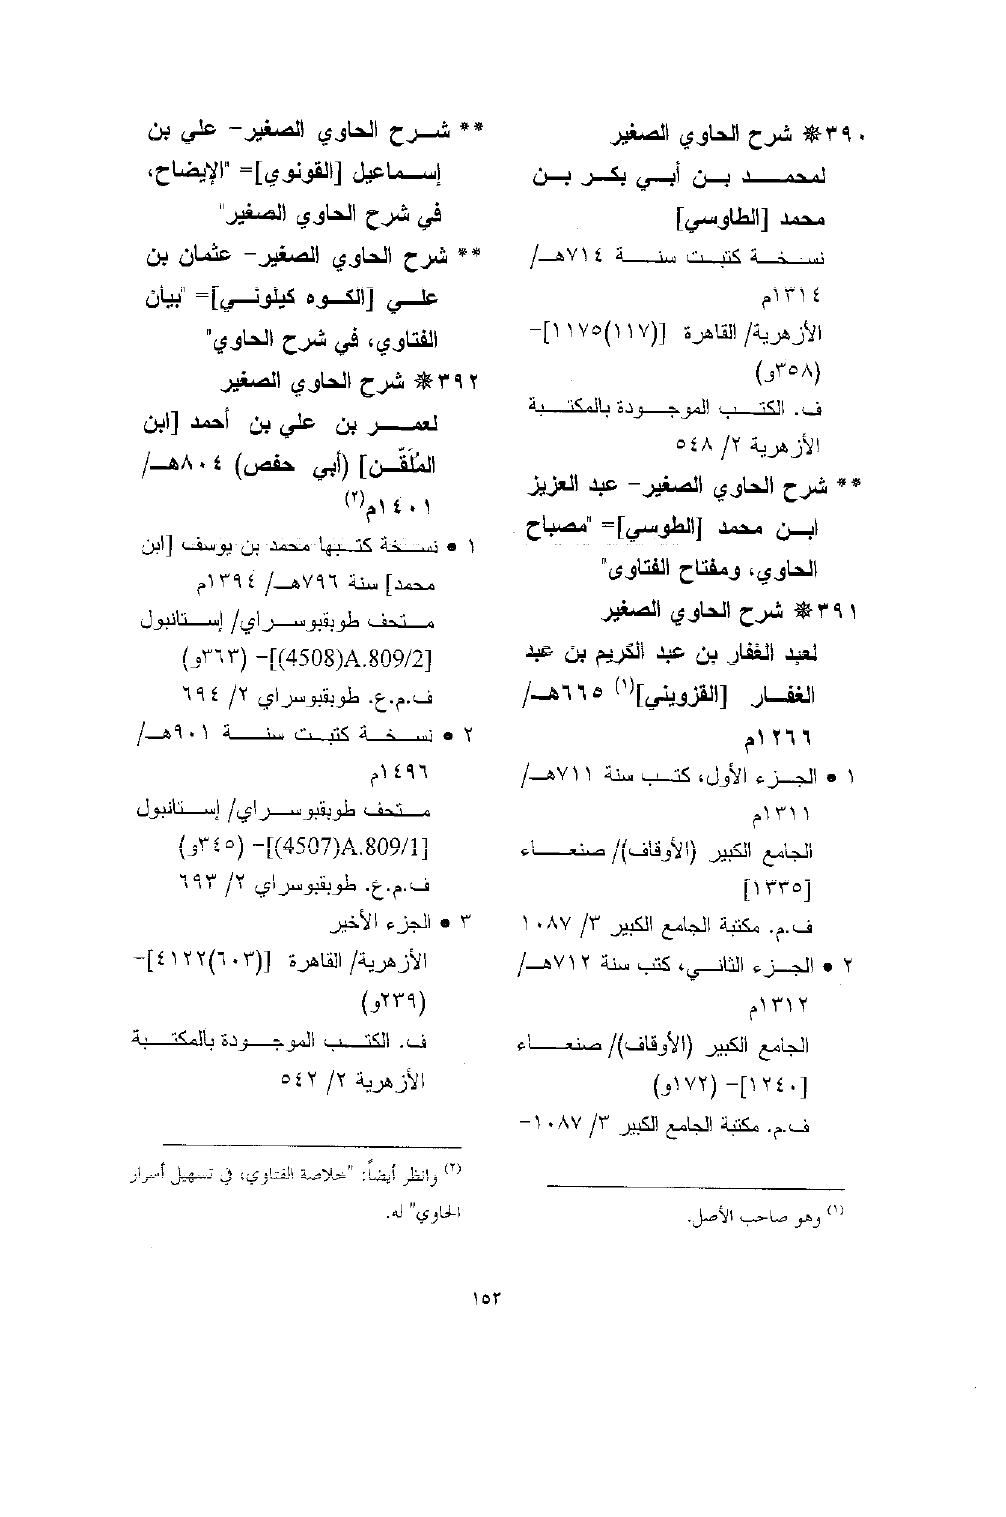 ٣٩٠* شرح الحاوي الصغير
لمحمد بن أبي بكر بن
محمد [الطاوسي]
نسخة كتبت سنة ٧١٤هـ/
١٣١٤م
الأزهرية/ القاهرة [(١١٧)١١٧٥]-
(٣٥٨و)
ف. الكتب الموجودة بالمكتبة
الأزهرية ٢/ ٥٤٨
** شرح الحاوي الصغير- عبد العزيز
ابن محمد [الطوسي]= "مصباح
الحاوي، ومفتاح الفتاوى"
٣٩١* شرح الحاوي الصغير
لعبد الغفار بن عبد الكريم بن عبد
الغفار [القزويني](١) ٦٦٥هـ/
١٢٦٦م
١ • الجزء الأول، كتب سنة ٧١١هـ/
١٣١١م
الجامع الكبير (الأوقاف)/ صنعاء
[١٣٣٥]
ف.م. مكتبة الجامع الكبير ٣/ ١٠٨٧
٢ • الجزء الثاني، كتب سنة ٧١٢هـ/
١٣١٢م
الجامع الكبير (الأوقاف)/ صنعاء
[١٢٤٠]- (١٧٢و)
ف.م. مكتبة الجامع الكبير ٣/ ١٠٨٧-
(١) وهو صاحب الأصل.
** شرح الحاوي الصغير- علي بن
إسماعيل [القونوي]= "الإيضاح،
في شرح الحاوي الصغير"
** شرح الحاوي الصغير- عثمان بن
علي [الكوه كيلوني]= "بيان
الفتاوي، في شرح الحاوي"
٣٩٢* شرح الحاوي الصغير
لعمر بن علي بن أحمد [ابن
المُلَقّن] (أبي حفص) ٨٠٤هـ/
١٤٠١م(٢)
١ • نسخة كتبها محمد بن يوسف [ابن
محمد] سنة ٧٩٦هـ/ ١٣٩٤م
متحف طوبقبوسراي/ إستانبول
[4508)A.809/2)]- (٣٦٣و)
ف.م.ع. طوبقبوسراي ٢/ ٦٩٤
٢ • نسخة كتبت سنة ٩٠١هـ/
١٤٩٦م
متحف طوبقبوسراي/ إستانبول
[4507)A.809/1)]- (٣٤٥و)
ف.م.ع. طوبقبوسراي ٢/ ٦٩٣
٣ • الجزء الأخير
الأزهرية/ القاهرة [(٦٠٣)٤١٢٢]-
(٢٣٩و)
ف. الكتب الموجودة بالمكتبة
الأزهرية ٢/ ٥٤٢
(٢) وانظر أيضاً: "خلاصة الفتاوي، في تسهيل أسرار
الحاوي" له.
١٥٢